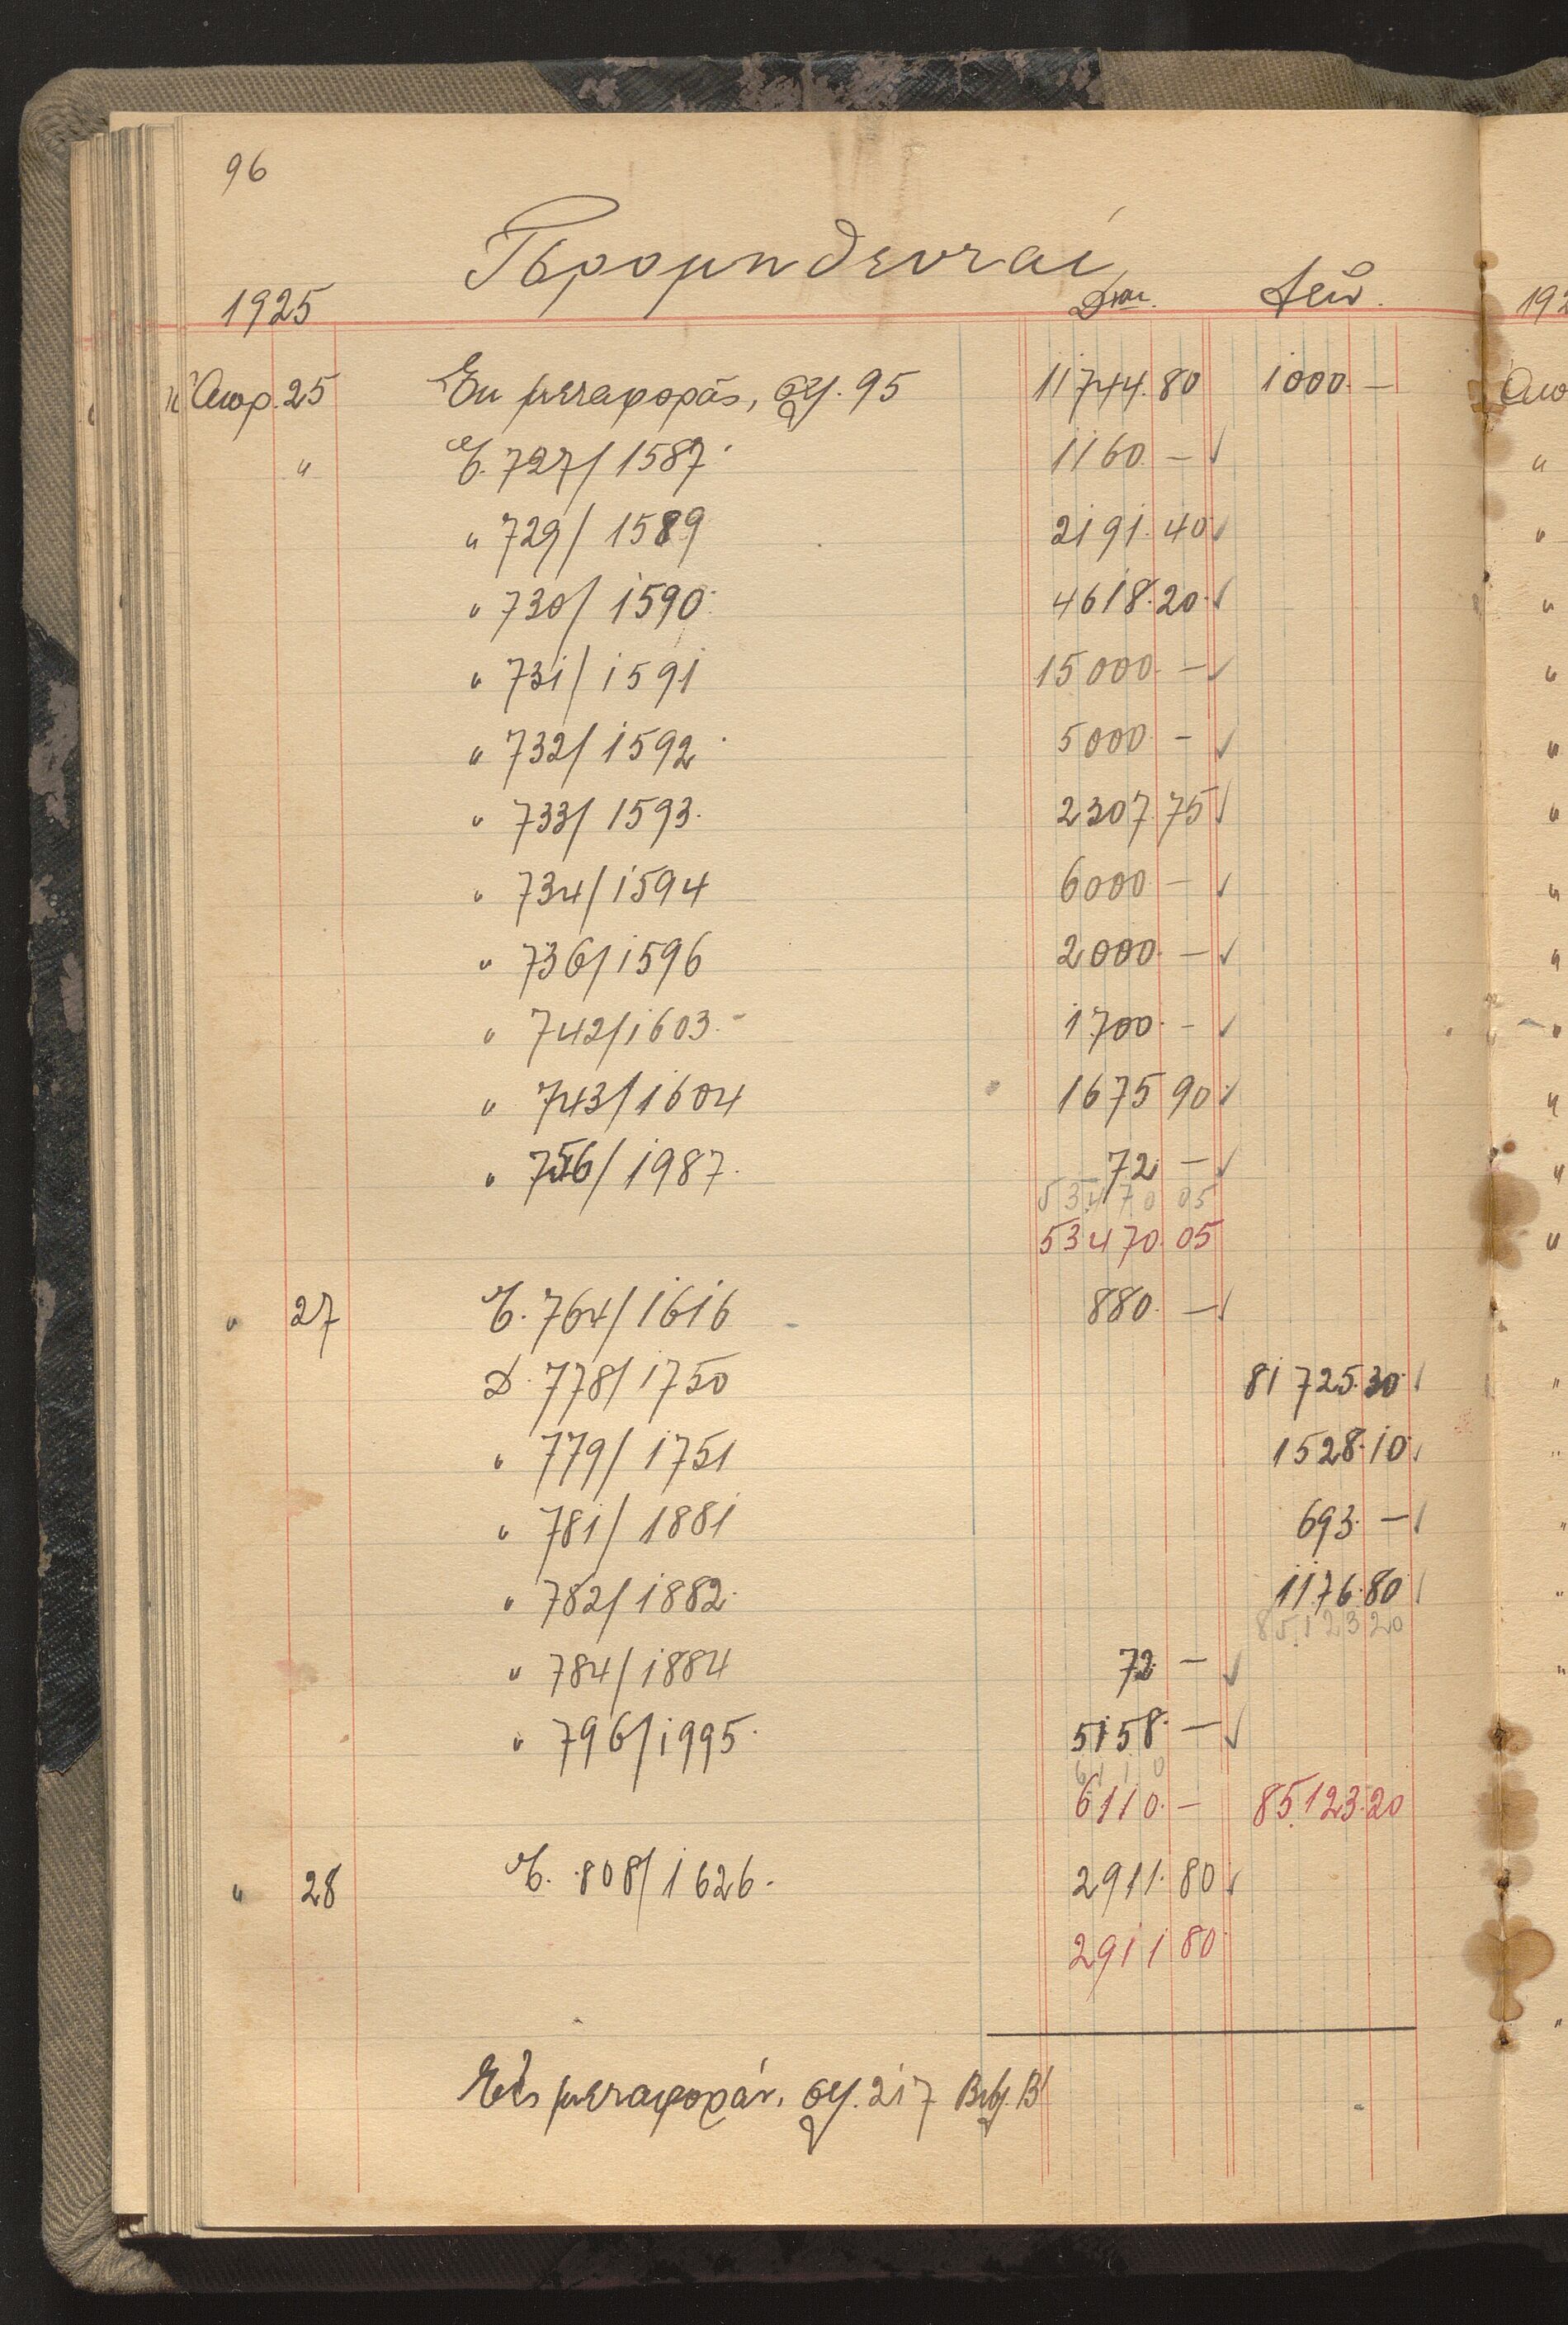 96
Προμηθευταί
1925 Δούν. Λαβ.
Απρ. 25 Εκ μεταφοράς, σελ. 95 11744.80 1000.—
" Ε. 727/1587 1160.— ✓
" 729/1589 2191.40 ✓
" 730/1590 4618.20 ✓
" 731/1591 15000.— ✓
" 732/1592 5000.— ✓
" 733/1593 2307.75 ✓
" 734/1594 6000.— ✓
" 736/1596 2000.— ✓
" 742/1603 1700.— ✓
" 743/1604 1675.90 ✓
" 756/1987 72.— ✓
53470 05
53470.05
" 27 Ε. 764/1616 880.— ✓
Δ. 778/1750 81725.30 ✓
" 779/1751 1528.10 ✓
" 781/1881 693.— ✓
" 782/1882 1176.80 ✓
85.123 20
" 784/1884 72.— ✓
" 796/1995 5158.— ✓
6110
6110.— 85.123.20
" 28 Ε. 808/1626 2911.80 ✓
2911.80
Εις μεταφοράν, σελ. 217 Βιβλ. Β'